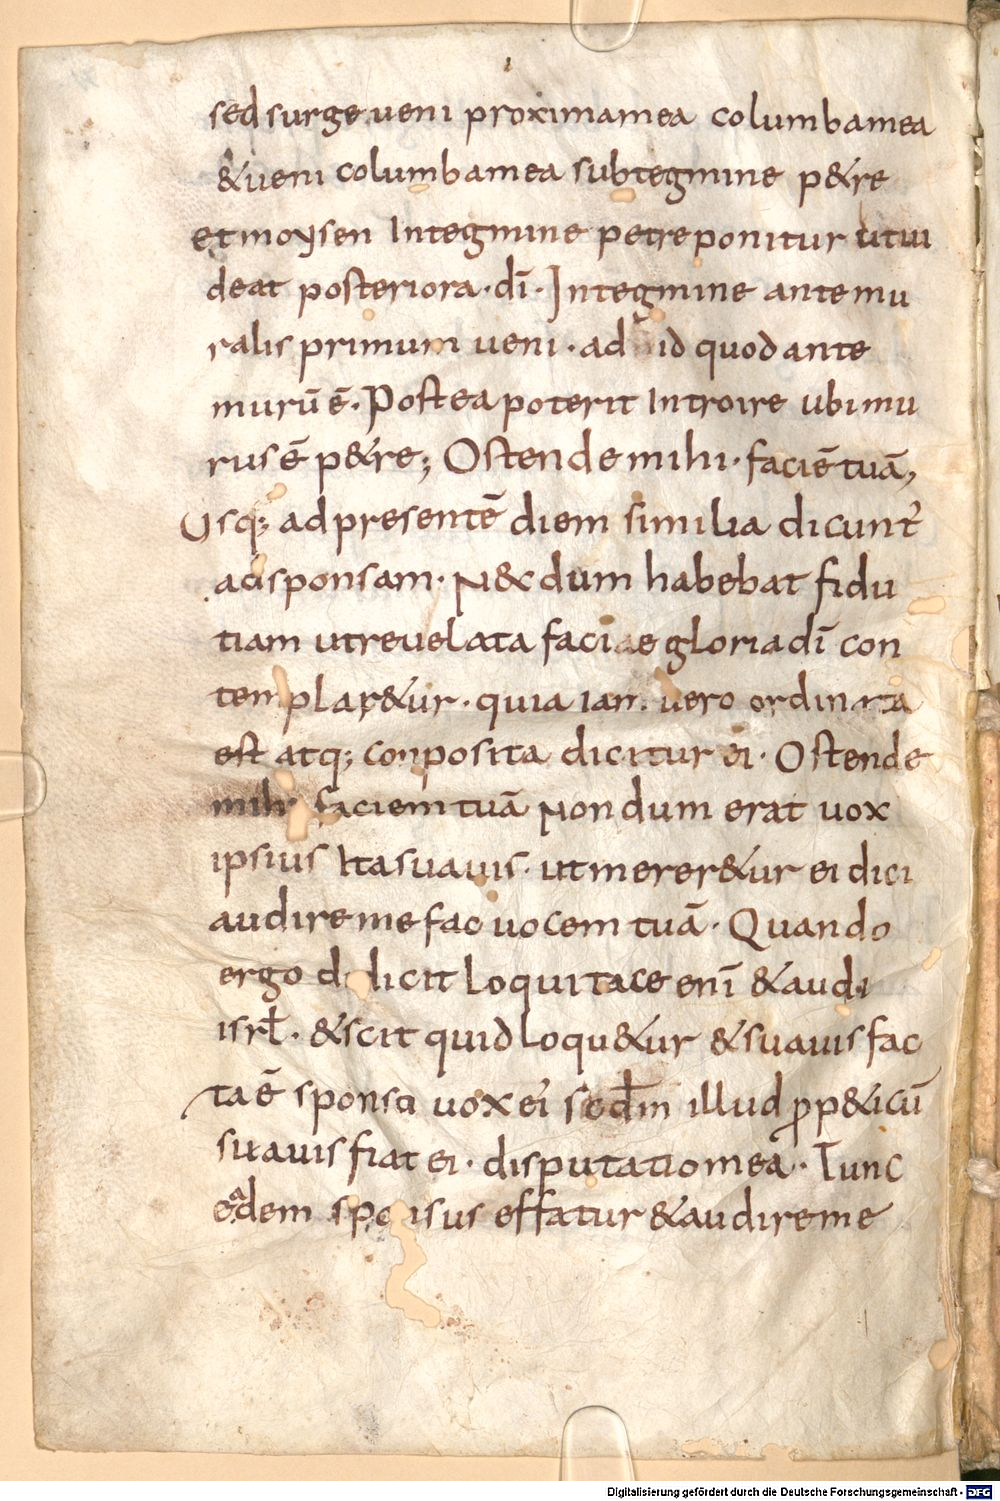 sed surge ueni proxima mea columba mea
& ueni columba mea sub tegmine p&re
et moysen In tegmine petre ponitur ut ui
deat posteriora · dī · In tegmine ante mu
ralis primum ueni · ad id quod ante
murū ē · Postea poterit Introire ubi mu
rus ē p&re; Ostende mihi · faciē tuā,
Usq; ad presentē diem similia dicunt̉
ad sponsam · N&dum habebat fidu
tiam ut reuelata faciae gloria dī con
templar&ur · quia iam uero ordinata
est atq; conposita dicitur ei · Ostende
mihi faciem tuā Nondum erat uox
ipsius Ita suauis · ut merer&ur ei dici
audire me fac uocem tuā · Quando
ergo didicit loqui tace enī & audi
isrł · & scit quid loqu&ur & suauis fac
ta ē sponsa uox ei sed m illud pp&icū
suauis fiat ei · disputatio mea · Tunc
eadem sponsus effatur & audire me
Digitalisierung gefördert durch die Deutsche Forschungsgemeinschaft - DFG